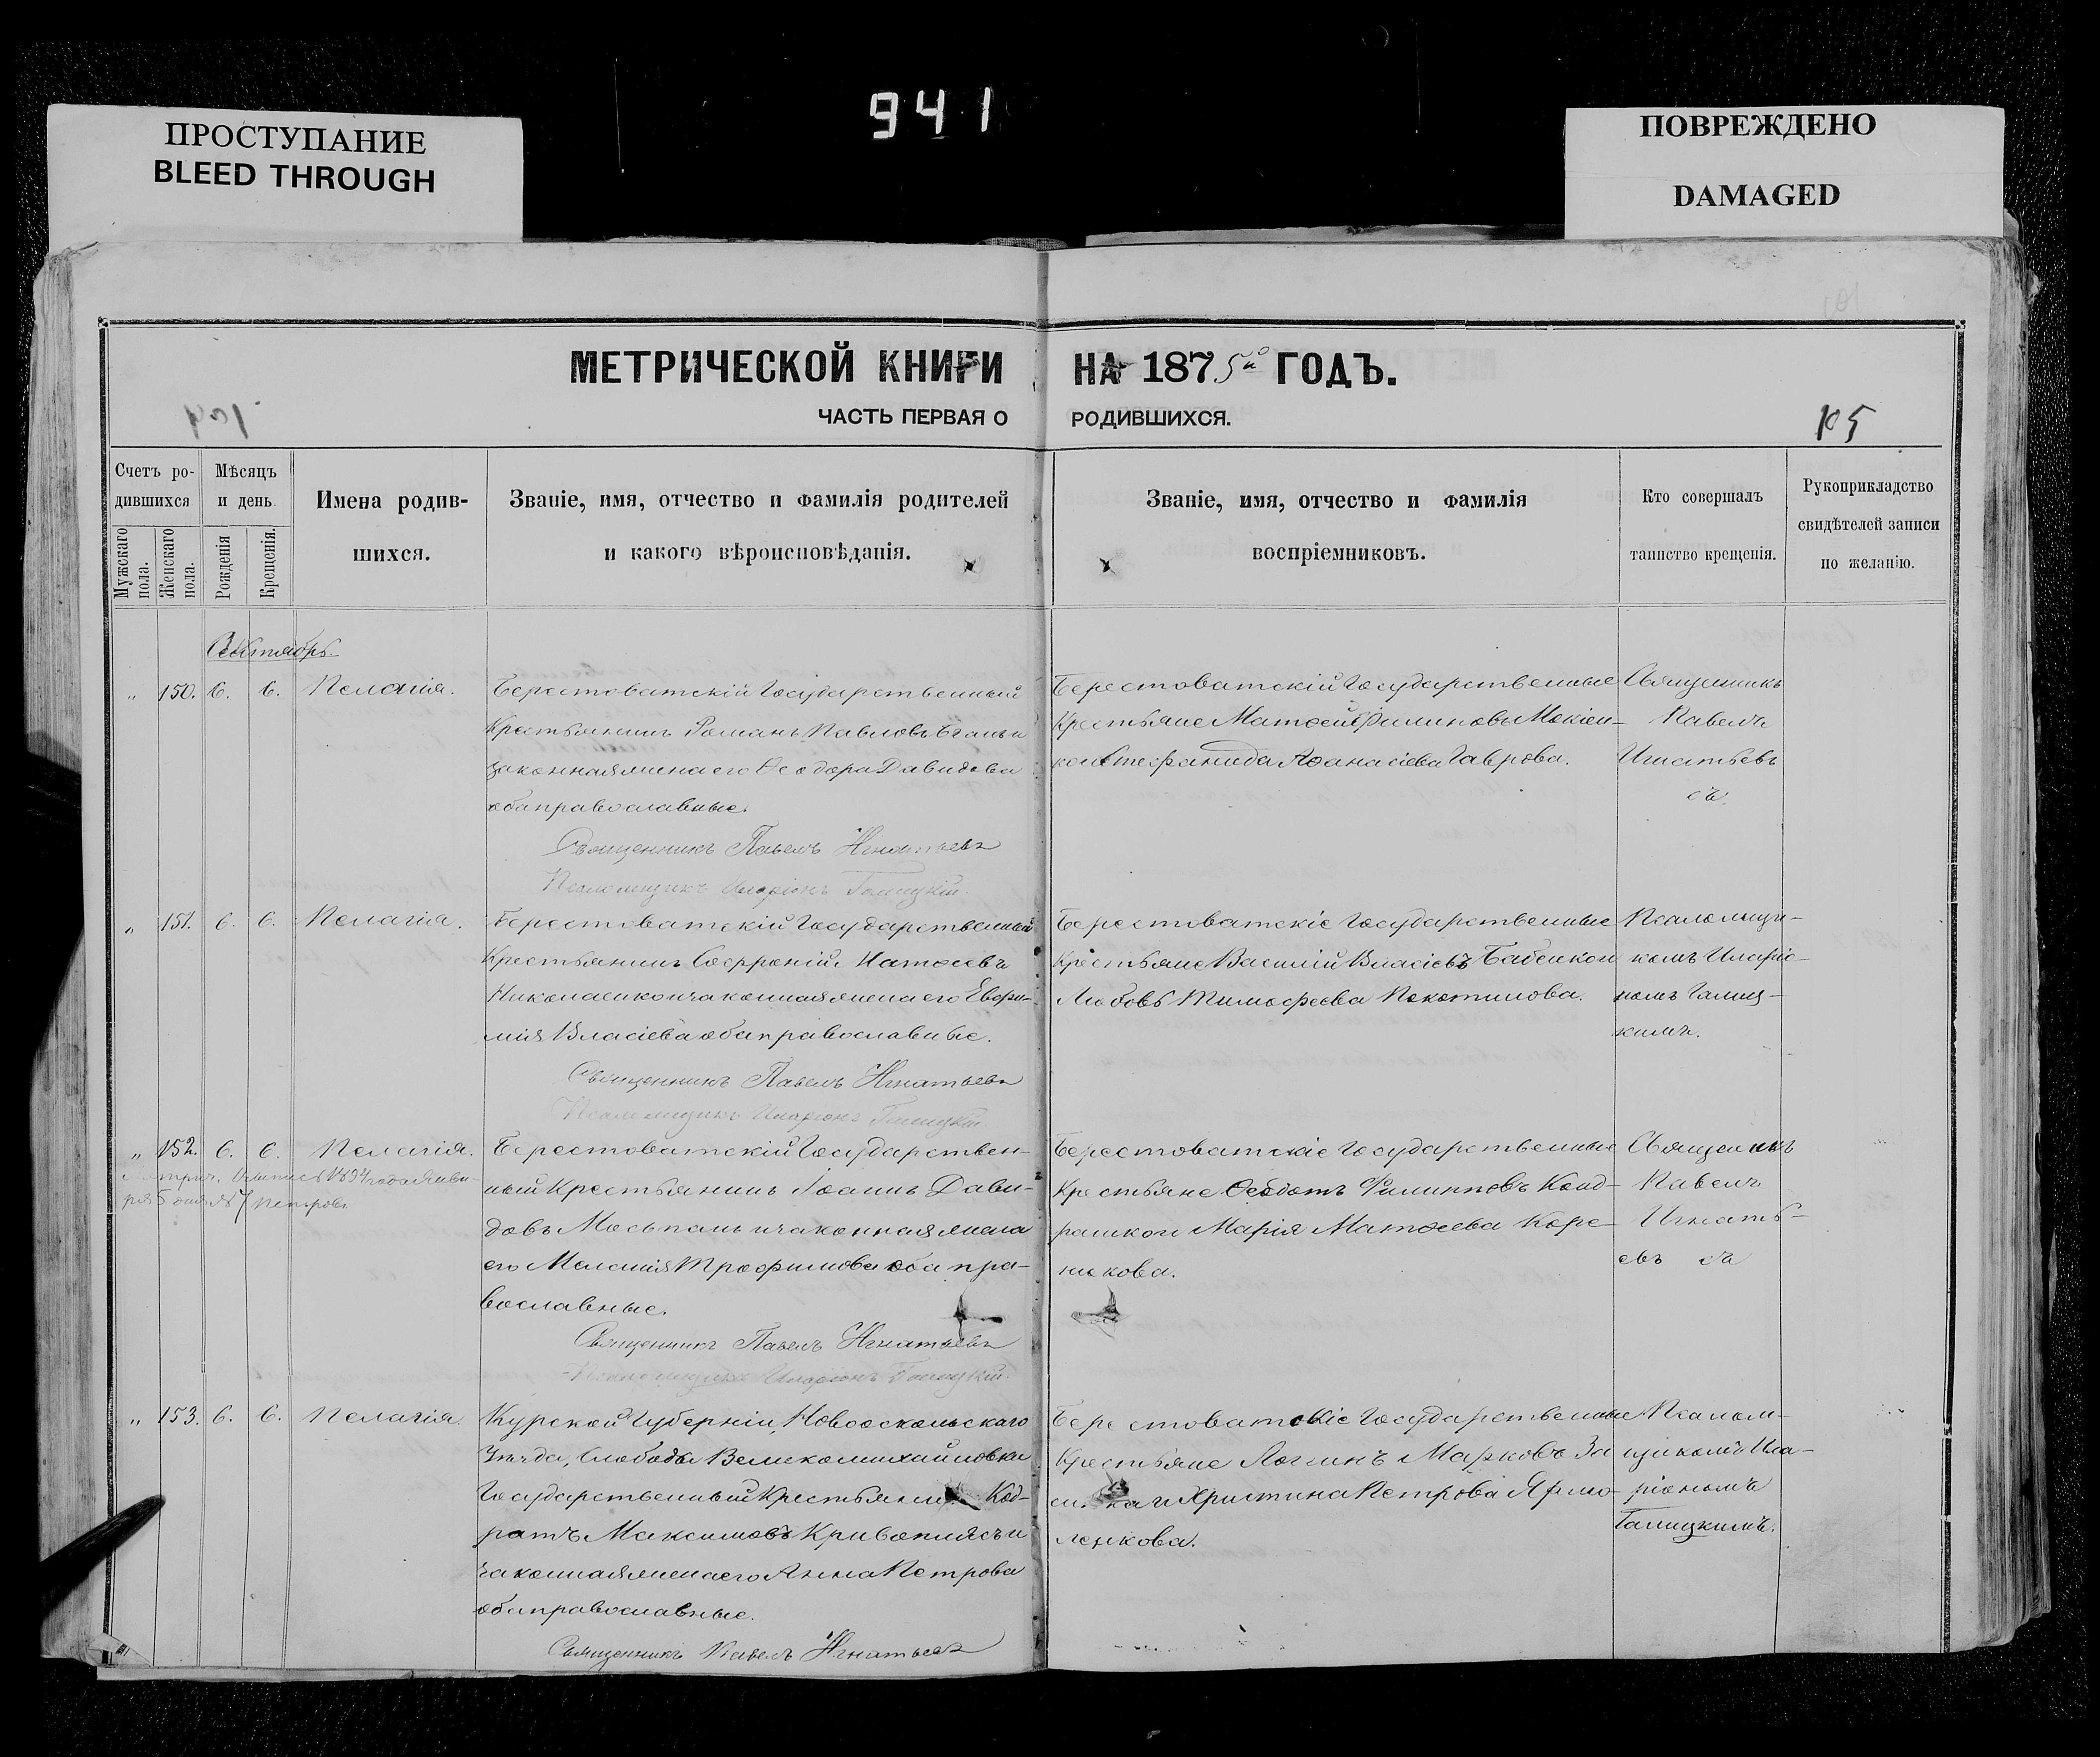 941
ПРОСТУПАНИЕ
BLEED THROUGH
ПОВРЕЖДЕНО
DAMAGED
МЕТРИЧЕСКОЙ КНИГИ НА 1875й ГОДЪ.
ЧАСТЬ ПЕРВАЯ О РОДИВШИХСЯ.
105
Счетъ ро-
дившихся
Мужскаго пола.
Женскаго пола.
Мѣсяцъ
и день
Рожденія
Крещенія.
Имена родив-
шихся.
Званіе, имя, отчество и фамилія родителей
и какого вѣроисповѣданія.
Званіе, имя, отчество и фамилія
воспріемниковъ.
Кто совершалъ
таинство крещенія.
Рукоприкладство
свидѣтелей записи
по желанію.
„ 150. 6. 6. Пелагія.
Берестоватскій Государственный
Крестьянинъ Романъ Павловъ
законная жена его Ѳеодора Давидова
оба православные.
Священникъ Павелъ Игнатьевъ
Псаломщикъ Иларіонъ Галицкій.
Берестоватскій Государственные
Крестьяне Матѳей Филиповъ
Стефанида Аѳанасіева Гаврова.
Священникъ
Павелъ
Игнатьевъ
„ 151. 6. 6. Пелагія.
Берестоватскій Государственный
Крестьянинъ Софроній Матѳеевъ
Николаенко и законная жена его Евфи-
мія Власіева оба православные.
Священникъ Павелъ Игнатьевъ
Псаломщикъ Иларіонъ Галицкій
Берестоватскіе Государственные
Крестьяне Василій Власіевъ Бабенко и
Любовь Тимофеева Покотилова.
Псаломщи-
комъ Иларіо-
номъ Галиц-
кимъ.
„ 152. 6. 6. Пелагія.
Берестоватскій Государствен-
ный Крестьянинъ Іоаннъ Дави-
довъ Мосьпанъ и законная жена
его Меланія Трофимова оба пра-
вославные.
Священникъ Павелъ Игнатьевъ
Псаломщикъ Иларіонъ Галицкій.
Берестоватскіе Государственные
Крестьяне Ѳеодотъ Филипповъ Конд-
рашко и Марія Матѳеева Коре-
никова.
Священникъ
Павелъ
Игнать-
евъ
„ 153. 6. 6. Пелагія.
Курской Губерніи, Новооскольскаго
Уѣзда, Слободы Великомихайловки
Государственный Крестьянинъ Код-
ратъ Максимовъ Кривоплясъ и
законная жена его Анна Петрова
оба православные.
Священникъ Павелъ Игнатьевъ
Берестоватскіе Государственные
Крестьяне Логинъ Марковъ
и Христина Петрова Ярмо-
ленкова.
Псалом-
щикомъ Ила-
ріономъ
Галицкимъ.